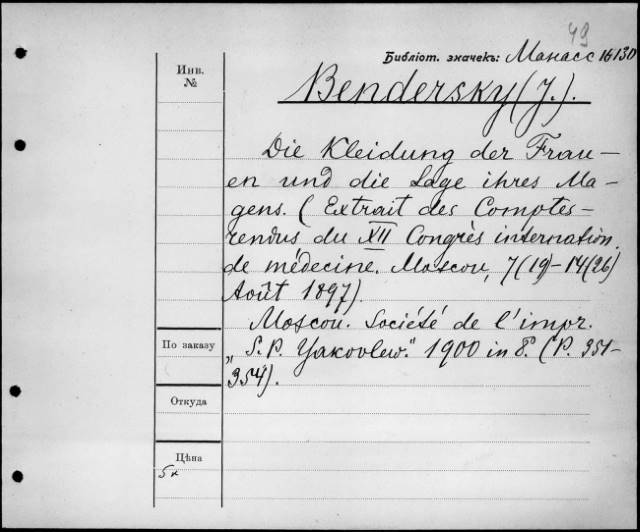 49
Библіот. значекъ: Манасс 16130
Инв.
№
Bendersky (J.).
Die Kleidung der Frau-
en und die Lage ihres Ma-
gens. (Extrait des Comptes-
rendus du XII Congrès internation.
de médecine. Moscou, 7(19)-14(26)
Août 1897).
Moscou. Société de l'impr.
„S. P. Yakovlew." 1900 in 8°. (P. 351-
354).
По заказу
Откуда
Цѣна
5к